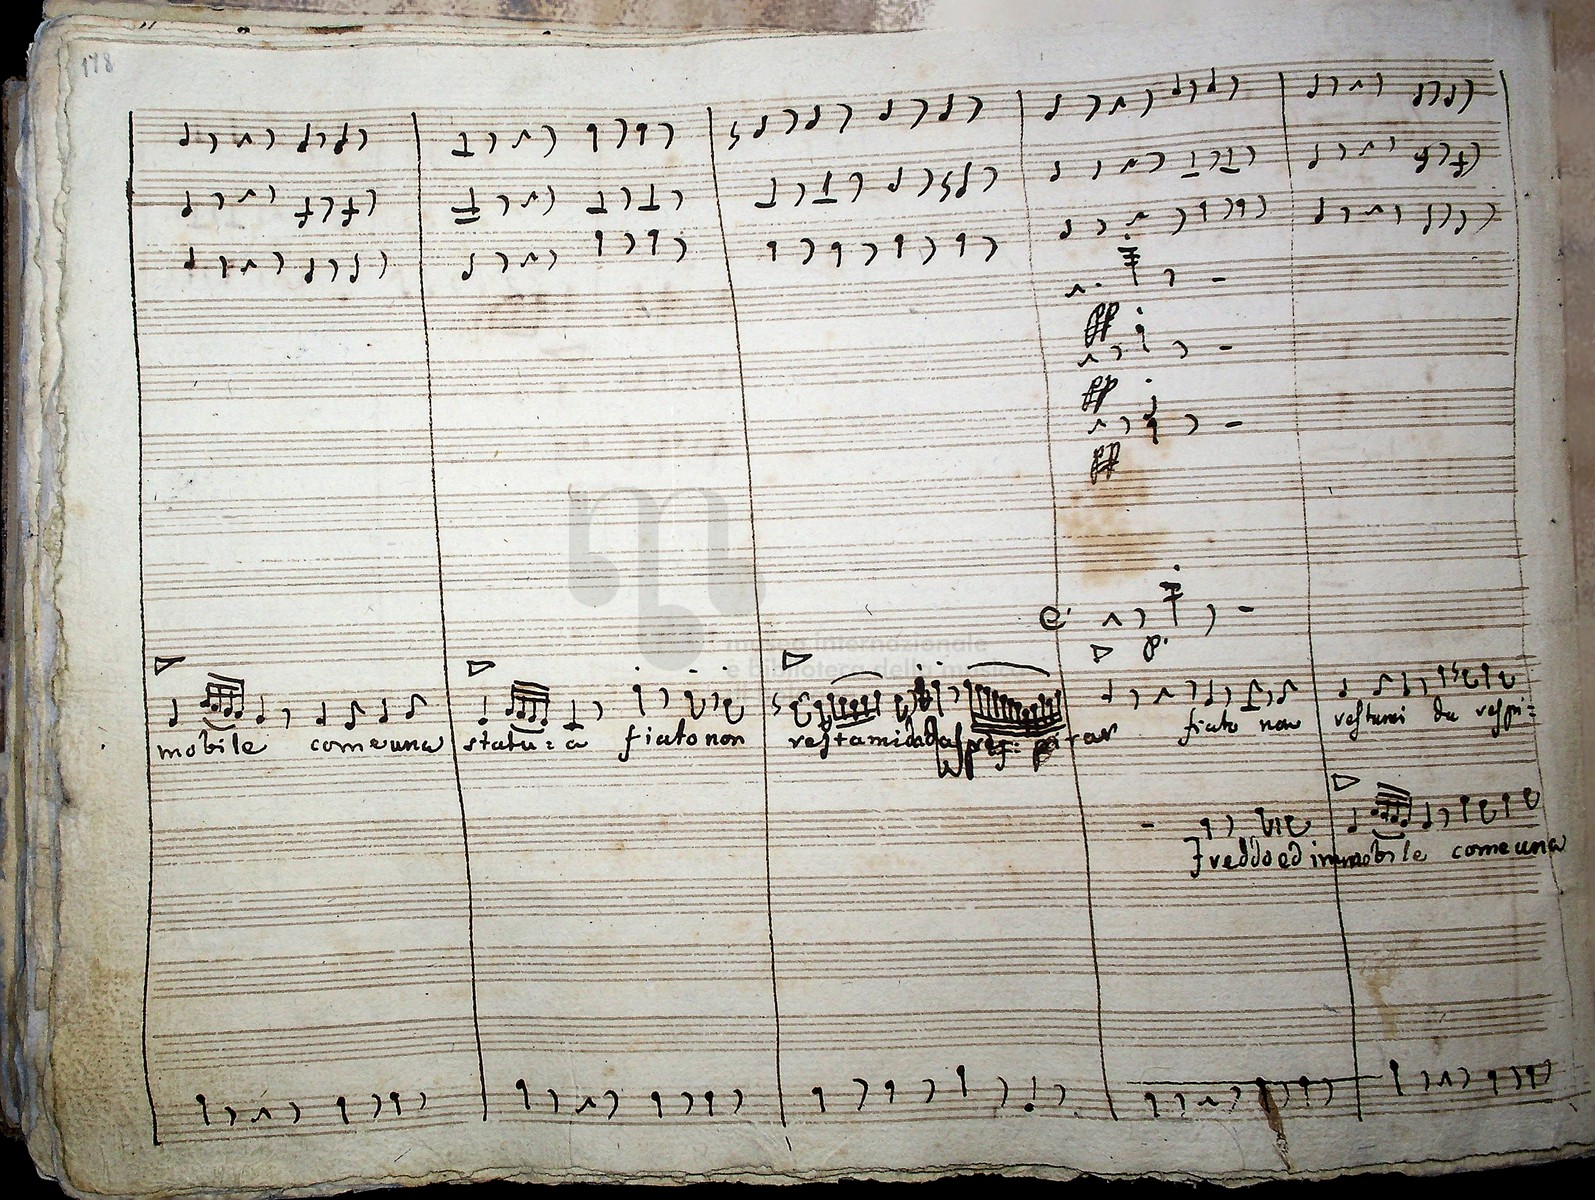 178
pp
pp
pp
p.
mobile come una statu=a fiato non restami da res: pi-rar fiato non restami da respi=
Freddo ed immobile come una
museo internazionale
e biblioteca della musica